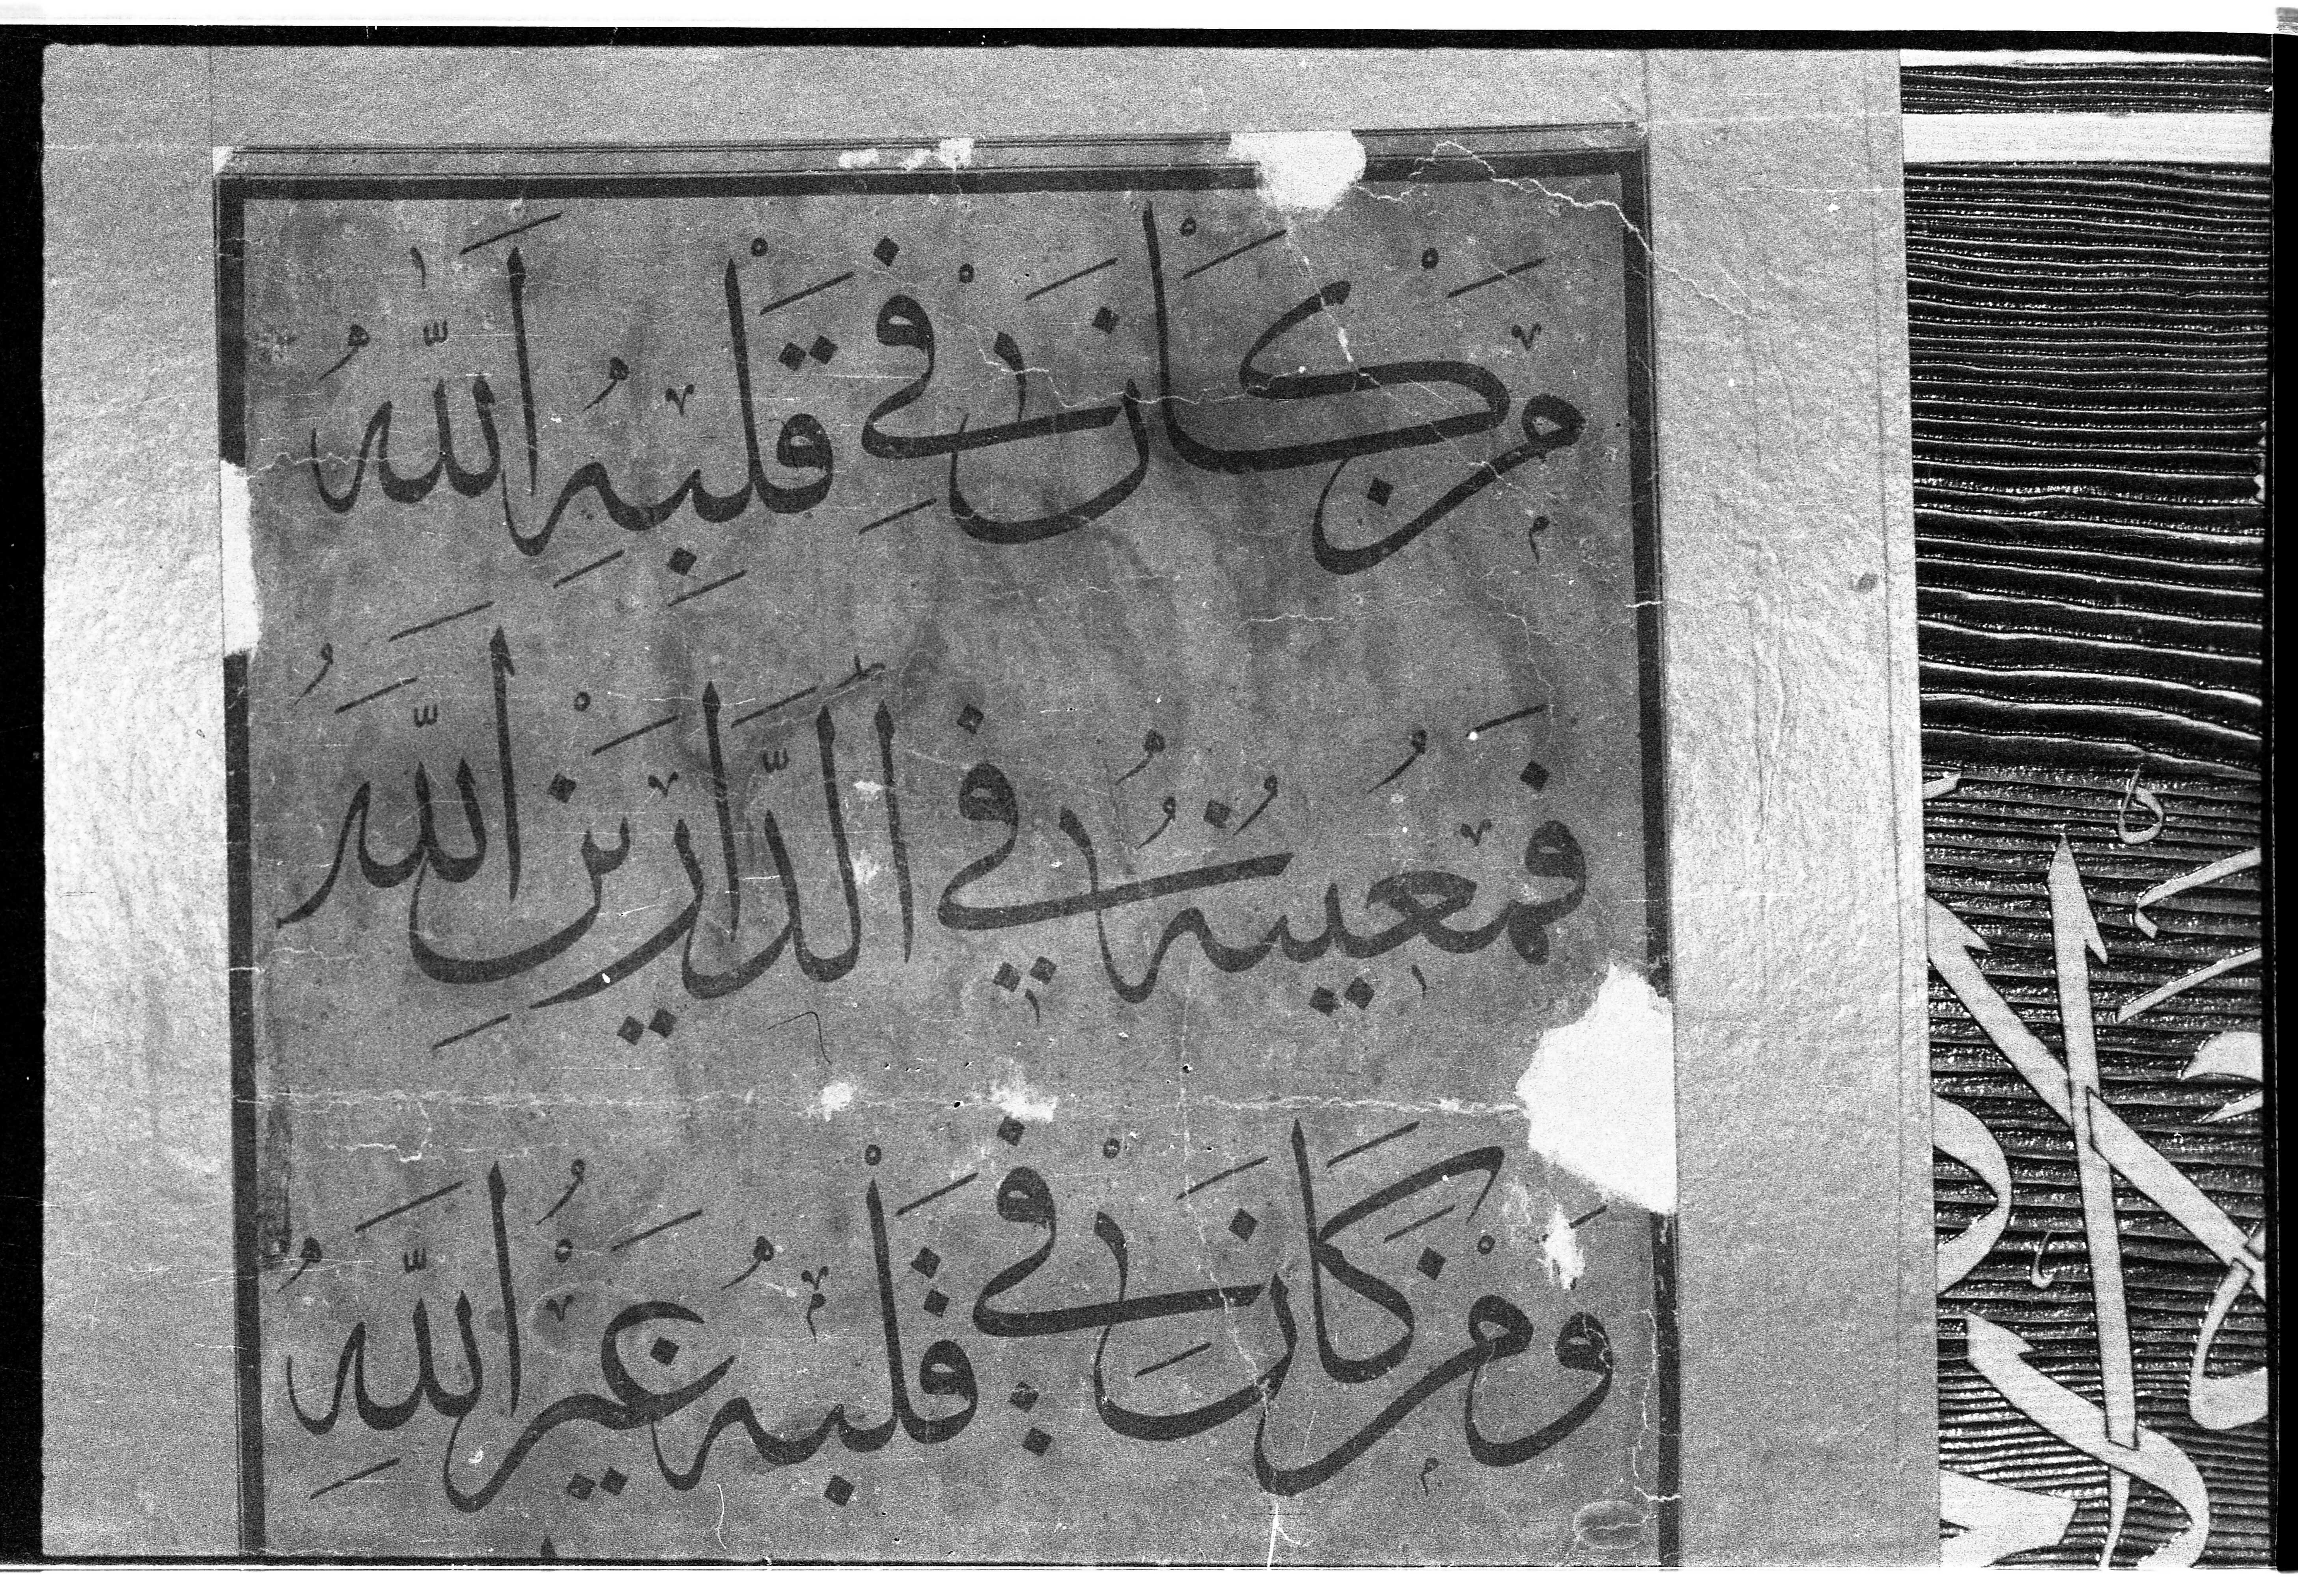 مَنْ كَانَ فِي قَلْبِهِ اَللّٰهُ
فَمُعِينُهُ فِي الدَّارَيْنِ اَللّٰهُ
وَمَنْ كَانَ فِي قَلْبِهِ غَيْرُ اللّٰهِ